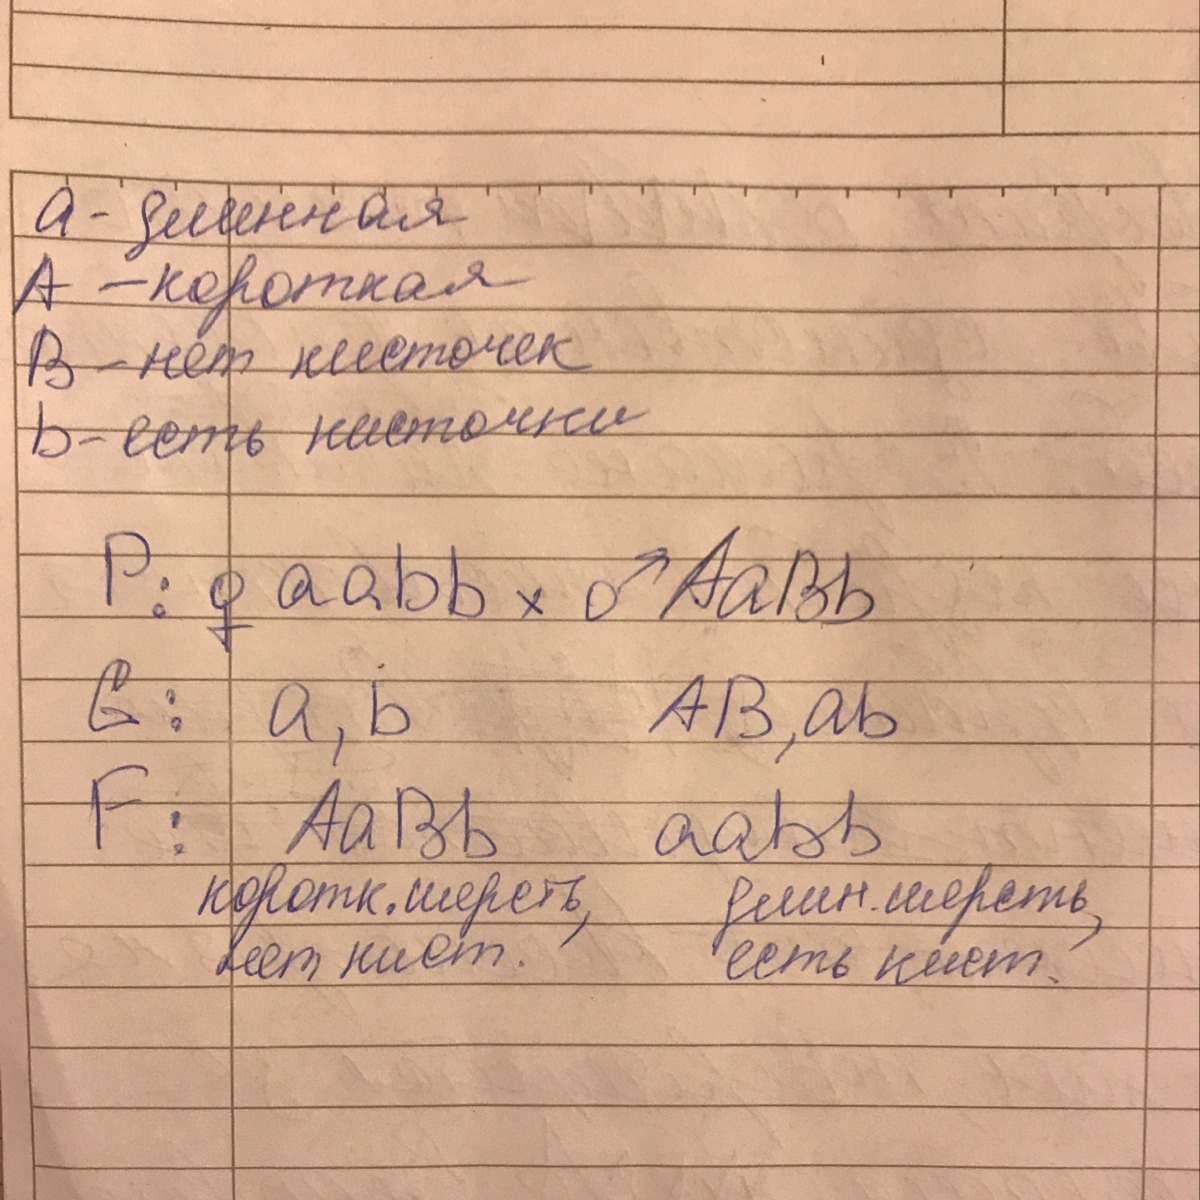 a - длинная
A - короткая
B - нет кисточек
b - есть кисточки
P: ♀ aabb x ♂ AaBb
G: a, b AB, ab
F: AaBb aabb
коротк. шерсть, длин. шерсть,
нет кист. есть кист.